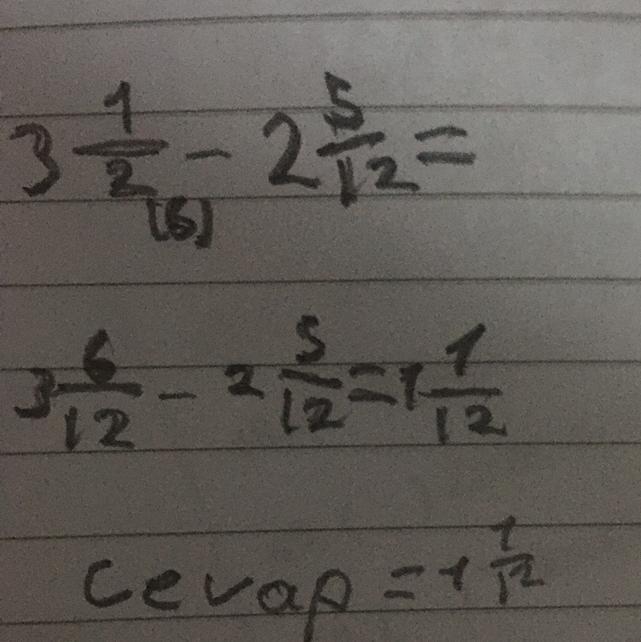 3 1/2 - 2 5/12 =
(6)
3 6/12 - 2 5/12 = 1 1/12
Cevap = 1 1/12